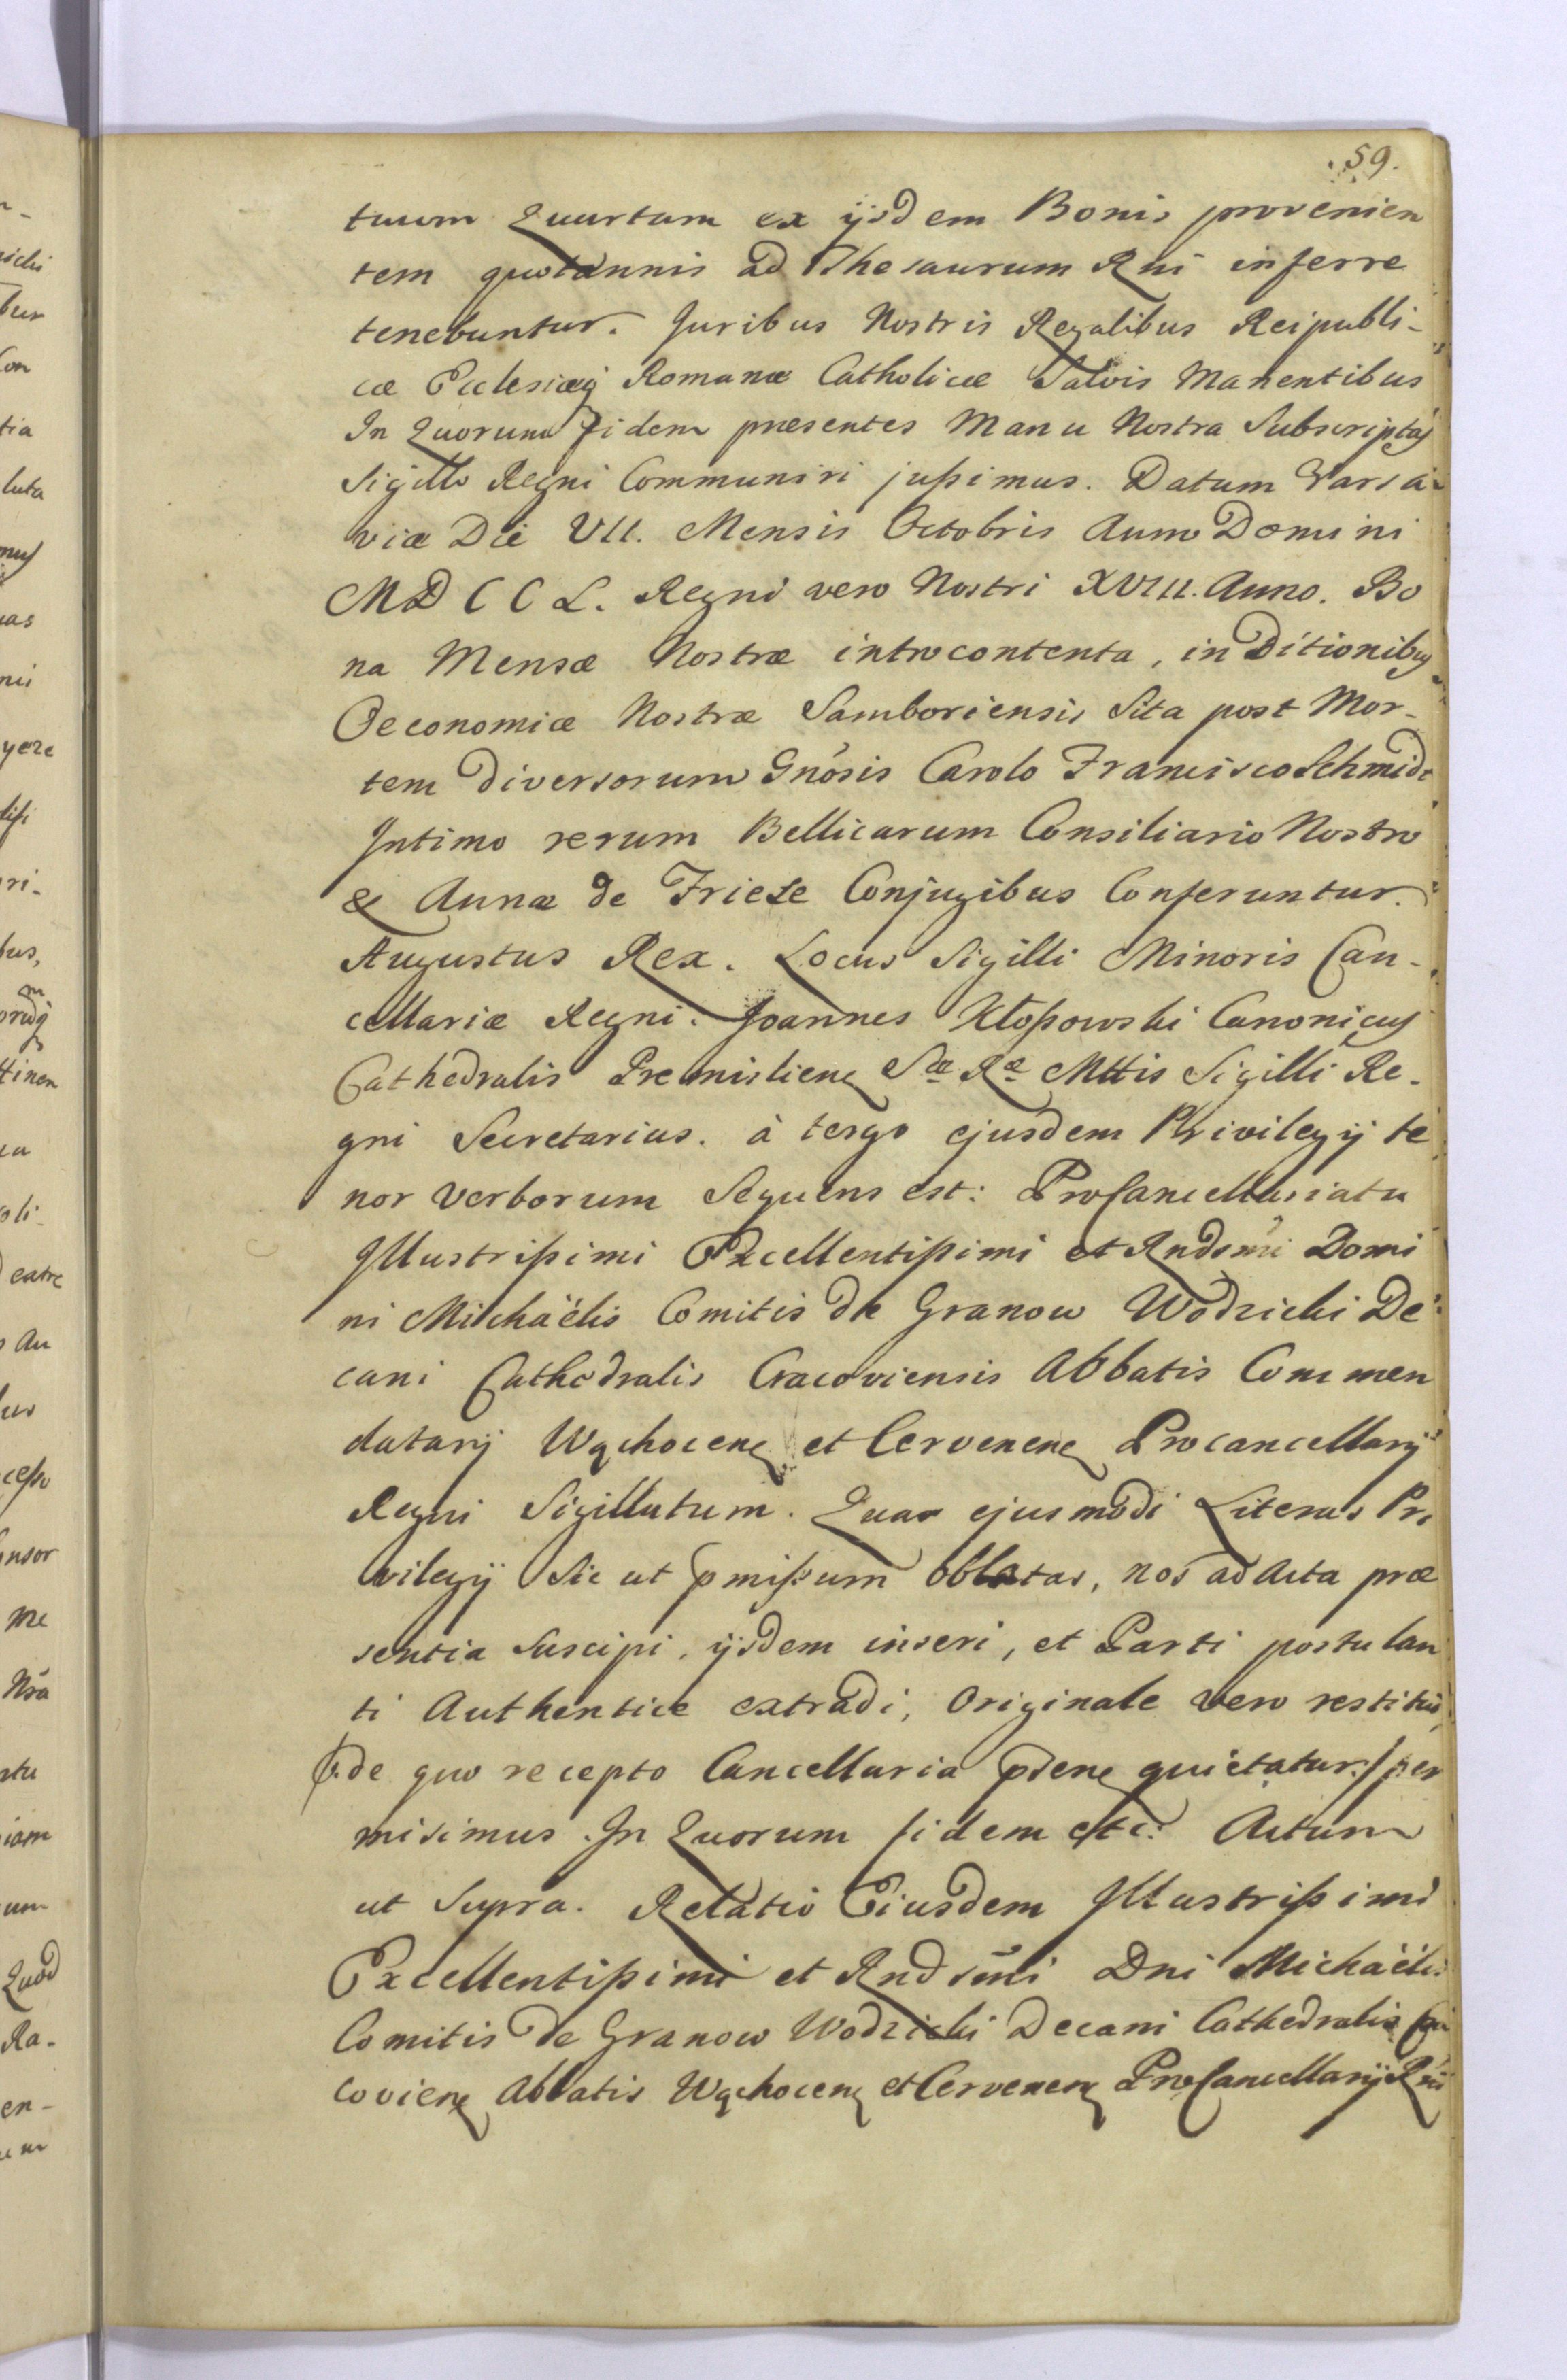 59.
tuum Quartam ex ijsdem Bonis provenien
tem quotannis ad Thesaurum Rni inferre
tenebuntur. Juribus Nostris Regalibus Reipubli-
cæ Ecclesiæq Romanæ Catholicæ Salvis Manentibus
In Quorum fidem præsentes Manu Nostra Subscriptas
Sigillo Regni Communiri jußimus. Datum Varsa-
viæ Die VII. Mensis Octobris Anno Domini
MDCCL. Regni vero Nostri XVIII. Anno. Bo
na Mensæ Nostræ introcontenta, in Ditionibus
Oeconomiæ Nostræ Samboriensis Sita post Mor-
tem diversorum Gnosis Carolo Francisco Schmidt
Intimo rerum Bellicarum Consiliario Nostro
& Annæ de Friese Conjugibus Conferuntur.
Augustus Rex. Locus Sigilli Minoris Can-
cellariæ Regni. Joannes Kłoßowski Canonicus
Cathedralis Premislien Sæ Ræ Mttis Sigilli Re-
gni Secretarius. à tergo ejusdem Privilegij te
nor verborum Sequens est: ProCancellariatu
Illustrißimi Excellentißimi et Rndsmi Domi
ni Michaëlis Comitis de Granow Wodzicki De-
cani Cathedralis Cracoviensis Abbatis Commen
datarij Wąchocen et Cervenen Procancellarij
Regni Sigillatum. Quas ejusmodi Literas Pri
vilegij Sic ut pmißum oblatas, nos ad Acta præ
sentia Suscipi, ijsdem inseri, et Parti postulan
ti Authentice extradi, Originale vero restitui,
/:de quo recepto Cancellaria pdens quietatur:/ per
misimus. In Quorum fidem etc: Actum
ut Supra. Relatio Eiusdem Illustrißimi
Excellentißimi et Rndsmi Dni Michaëlis
Comitis de Granow Wodzicki Decani Cathedralis Cra
covien Abbatis Wąchocen et Cervenen ProCancellarij Rni